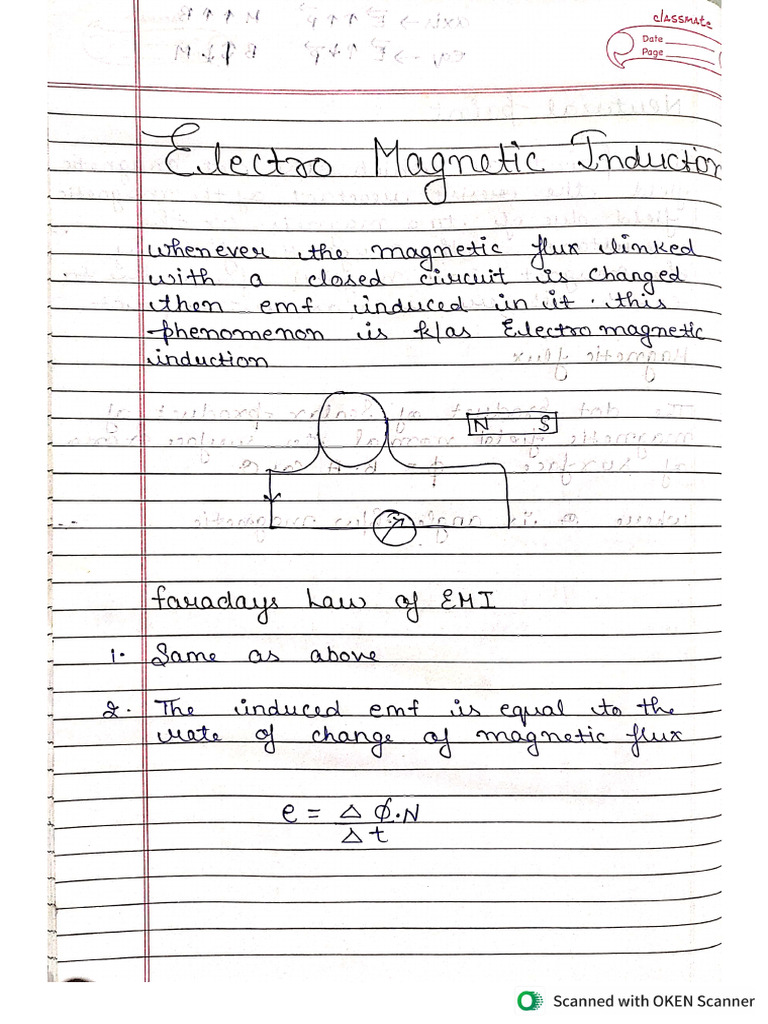 classmate
Date
Page
Electro Magnetic Induction
whenever the magnetic flux linked
with a closed circuit is changed
then emf induced in it. this
phenomenon is k/as Electromagnetic
induction
N S
faradays Law of EMI
1. Same as above
2. The induced emf is equal to the
rate of change of magnetic flux
e = Δ φ.N
Δt
Scanned with OKEN Scanner